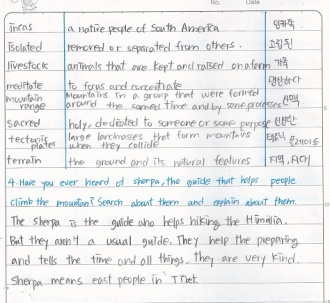 No. Date
incas a native people of South America 잉카족
isolated removed or separated from others. 고립된
livestock animals that are kept and raised on a farm 가축
meditate to focus and concentrate 명상하다
mountain range Mountains in a group that were formed around the same time and by same processes 산맥
sacred holy, dedicated to someone or some purpose 신성한
tectonic plates large landmasses that form mountains when they collide 플레이트
terrain the ground and its natural features 지역, 지대
4. Have you ever heard of sherpa, the guide that helps people
climb the mountain? Search about them and explain about them.
The Sherpa is the guide who helps hiking the
But they aren't a usual guide. They help the preparing
and tells the time and all things. They are very kind.
Sherpa means east people in Tibet.